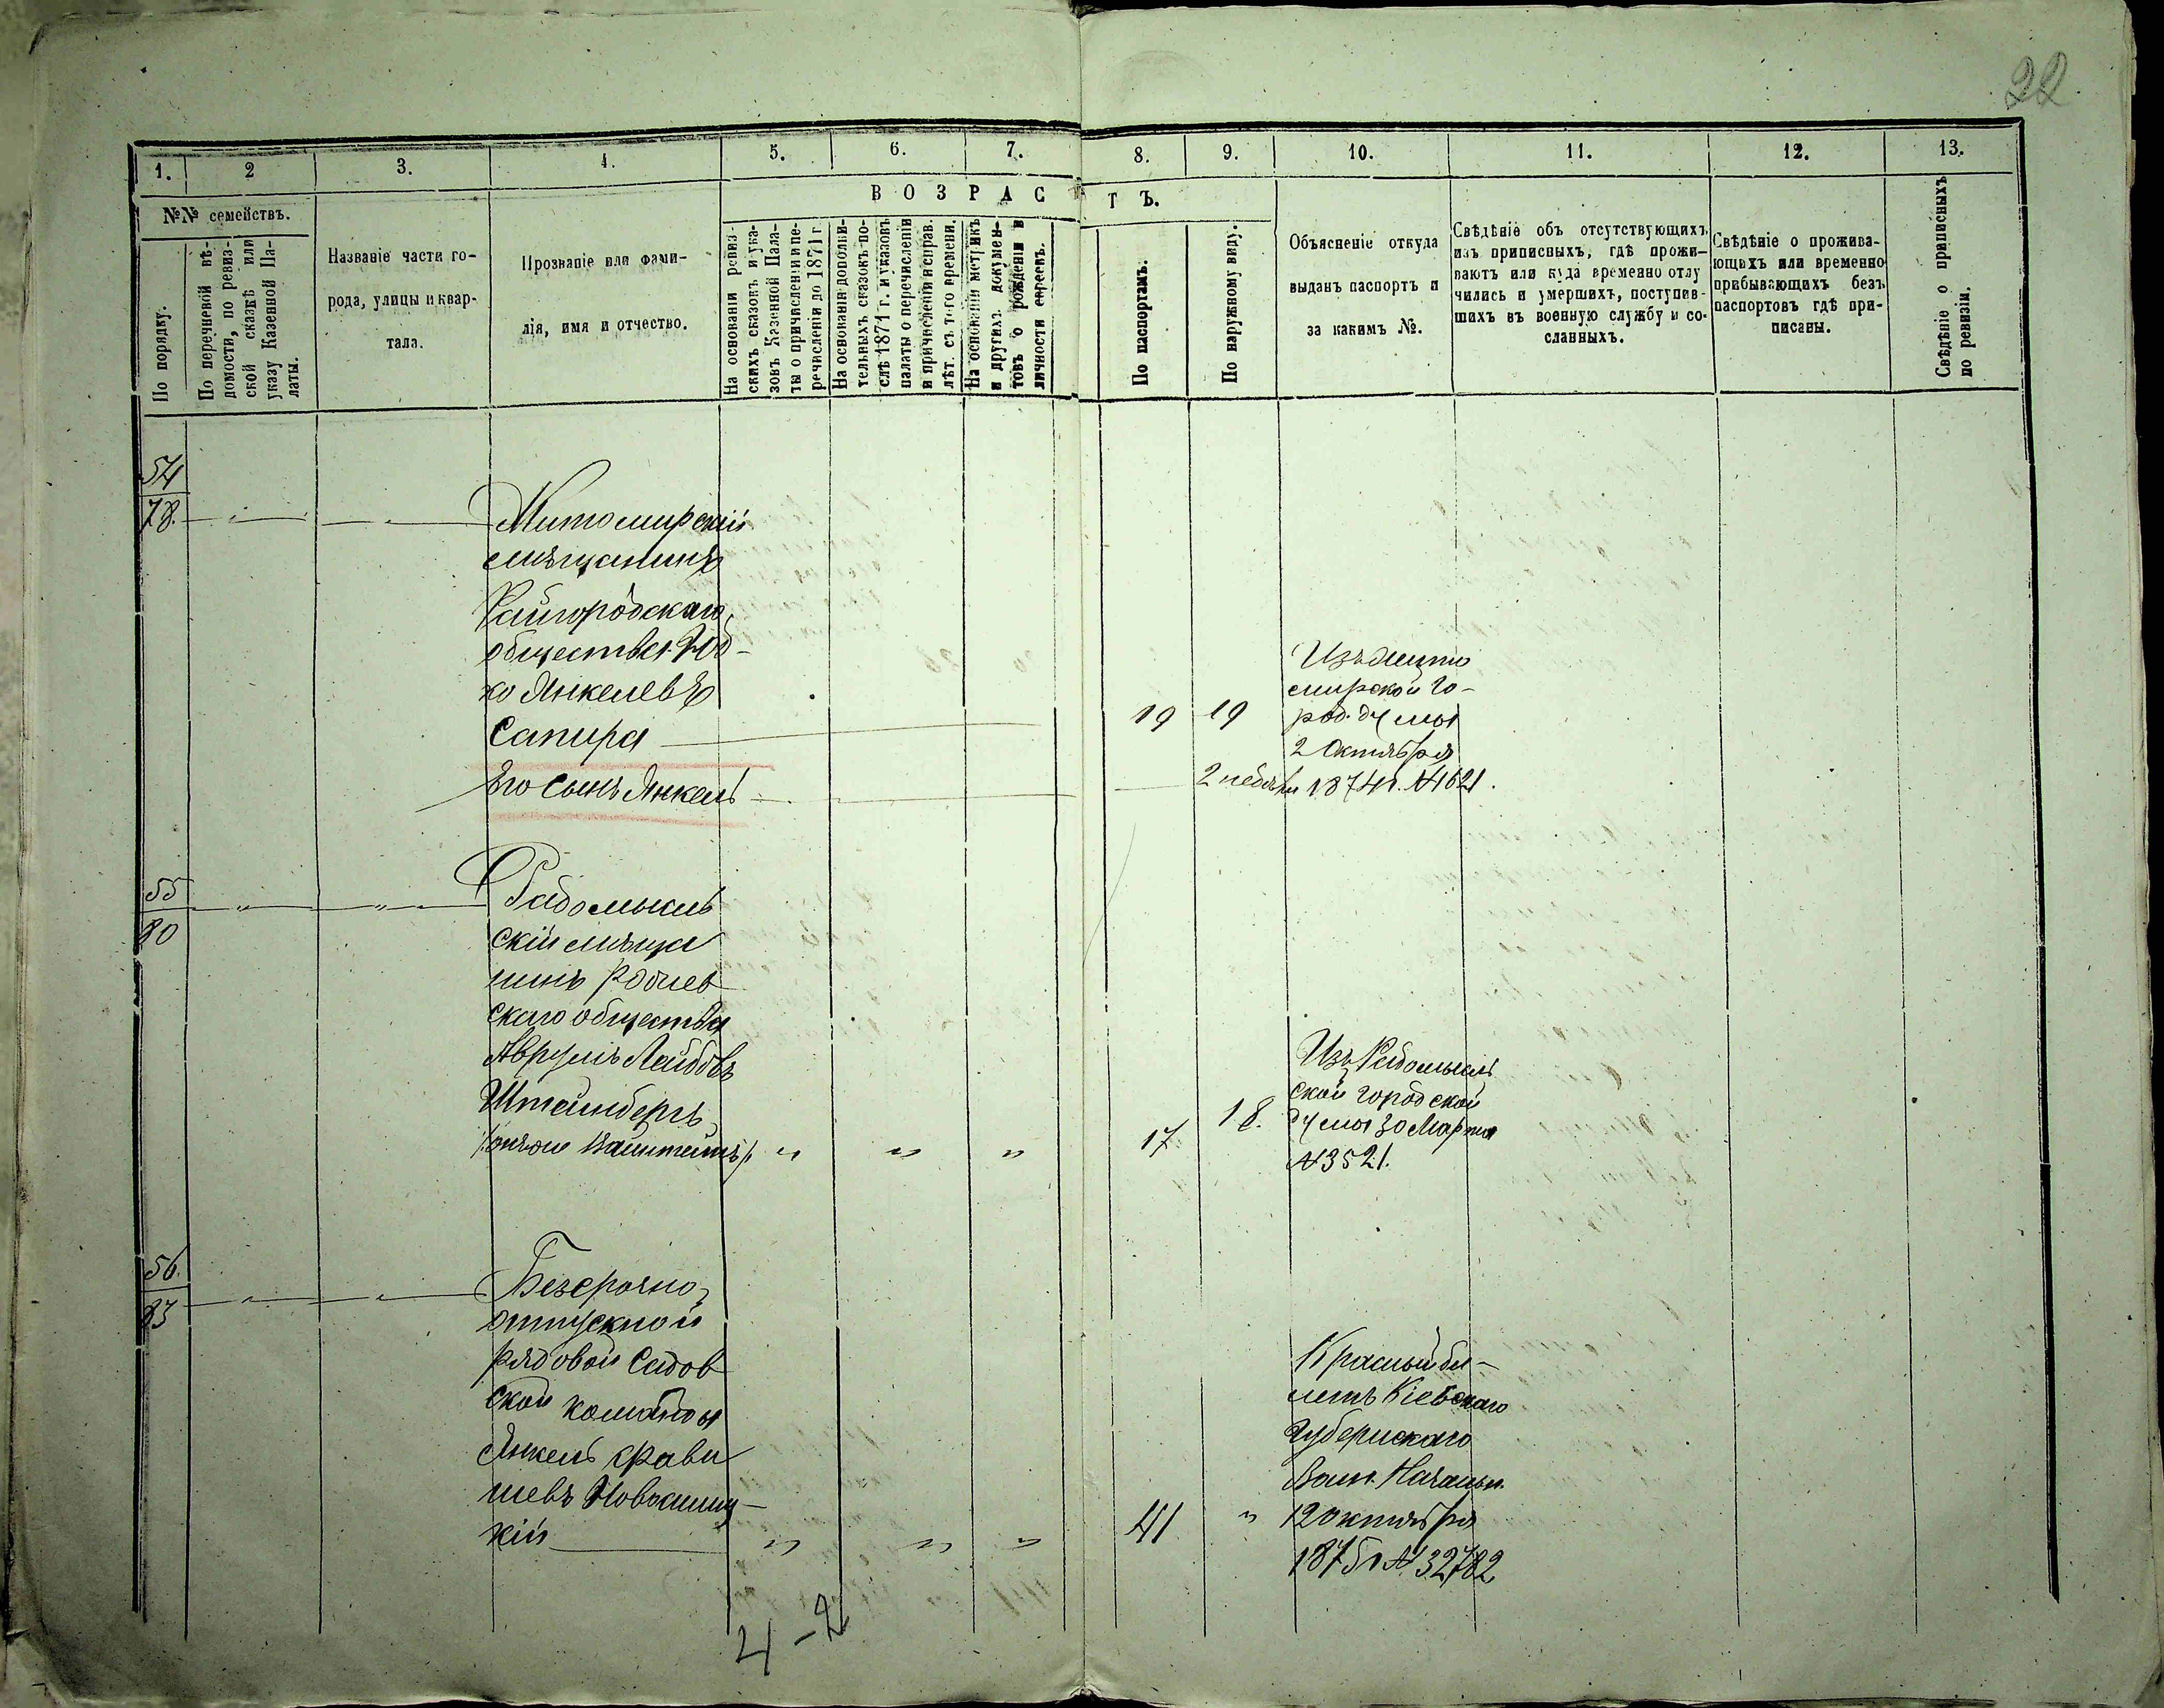 22
1.
2
3.
4.
5.
6.
7.
8.
9.
10.
11.
12.
13.
№№ семействъ.
ВОЗРАСТЪ.
По порядку.
По перечневой вѣ-
домости, по ревиз-
ской сказкѣ или
указу Казенной Па-
латы.
Названіе части го-
рода, улицы и квар-
тала.
Прозваніе или фами-
лія, имя и отчество.
На основаніи ревиз-
скихъ сказокъ и ука-
зовъ Казенной Пала-
ты о причисленіи и пе-
речисленіи до 1871 г
На основаніи дополни-
тельныхъ сказокъ по-
слѣ 1871 г. и указовъ
палаты о перечисленіи
и причисленіи и справ.
лѣт. съ того времени.
На основаніи метрикъ
и другихъ докумен-
товъ о рожденіи и
личности евреевъ.
По паспортамъ.
По наружному виду.
Объясненіе откуда
выданъ паспортъ и
за какимъ №.
Свѣдѣніе объ отсутствующихъ
изъ приписныхъ, гдѣ прожи-
ваютъ или куда временно отлу
чились и умершихъ, поступив-
шихъ въ военную службу и со-
сланныхъ.
Свѣдѣніе о прожива-
ющихъ или временно
прибывающихъ безъ
паспортовъ гдѣ при-
писаны.
Свѣдѣніе о приписныхъ
по ревизіи.
54
78.
Житомирскій
мѣщанинъ
Райгородскаго
общества Юд-
ко Янкелевъ
Сапира
19 19
Изъ Жито
мирской Го-
род. думы
2 Октября
1874 г. №1621.
Его сынъ Янкель
2 недѣли
55
80
Радомысль
скій мѣща
нинъ
скаго общества
Аврумъ Лейбовъ
Штейнбергъ
/: онъже Вайнштейнъ :/ " " "
17. 18.
Изъ Радомысль
ской городской
думы 30 Марта
№3521.
56.
83
Безсрочно
отпускной
рядовой Садов
ской команды
Янкель
шевъ
кій " " "
41 "
Красный би-
летъ Кіевскаго
Губернскаго
Воин. Начальн.
12 октября
1875 г №32782
4-2